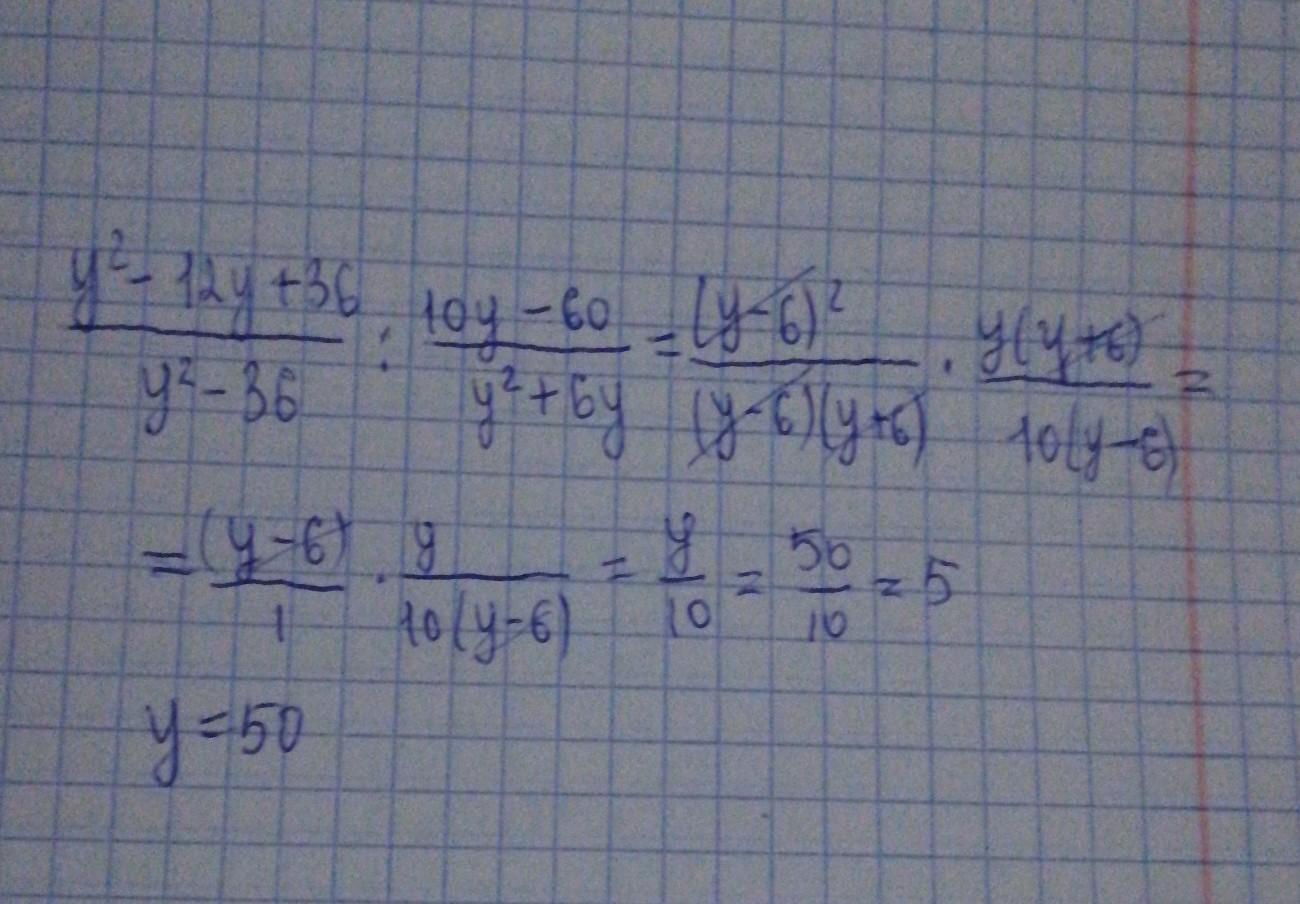 (y² - 12y + 36)/(y² - 36) : (10y - 60)/(y² + 6y) = (y-6)²/((y-6)(y+6)) · y(y+6)/(10(y-6)) =
= (y-6)/1 · y/(10(y-6)) = y/10 = 50/10 = 5
y = 50